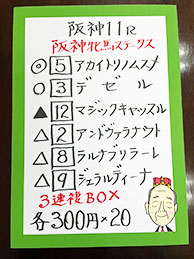 阪神11R
阪神牝馬ステークス
◎5アカイトリノムスメ
○3デゼル
▲12マジックキャッスル
△2アンドヴァラナウト
△8ラルナブリラーレ
△9ジェラルディーナ
3連複BOX
各300円×20